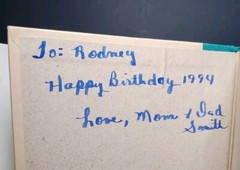 To: Rodney
Happy Birthday 1994
Love, Mom & Dad
Smith